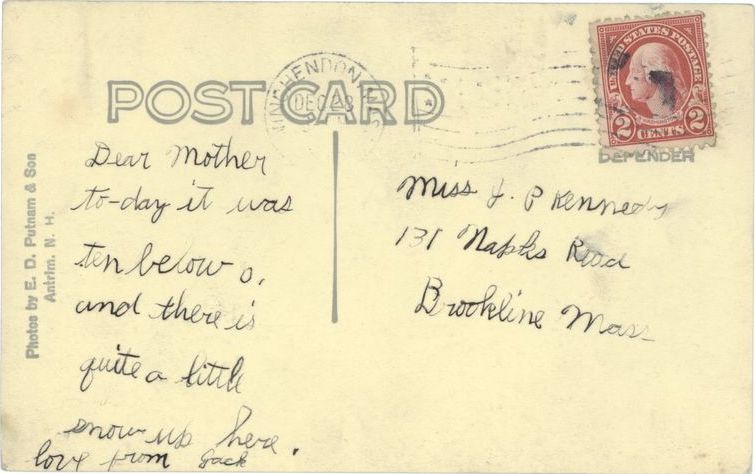 POST CARD
DEC 28
UNITED STATES POSTAGE
2 CENTS 2
DEFENDER
Photos by E. D. Putnam & Son
Antrim, N. H.
Dear Mother
to-day it was
ten below o.
and there is
quite a little
snow up here.
love from Jack
Miss J. P Kennedy
131 Naples Road
Brookline Mass